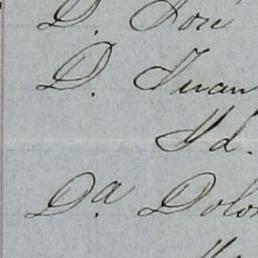 D. José
D. Juan
Id.
Dª. Dolo